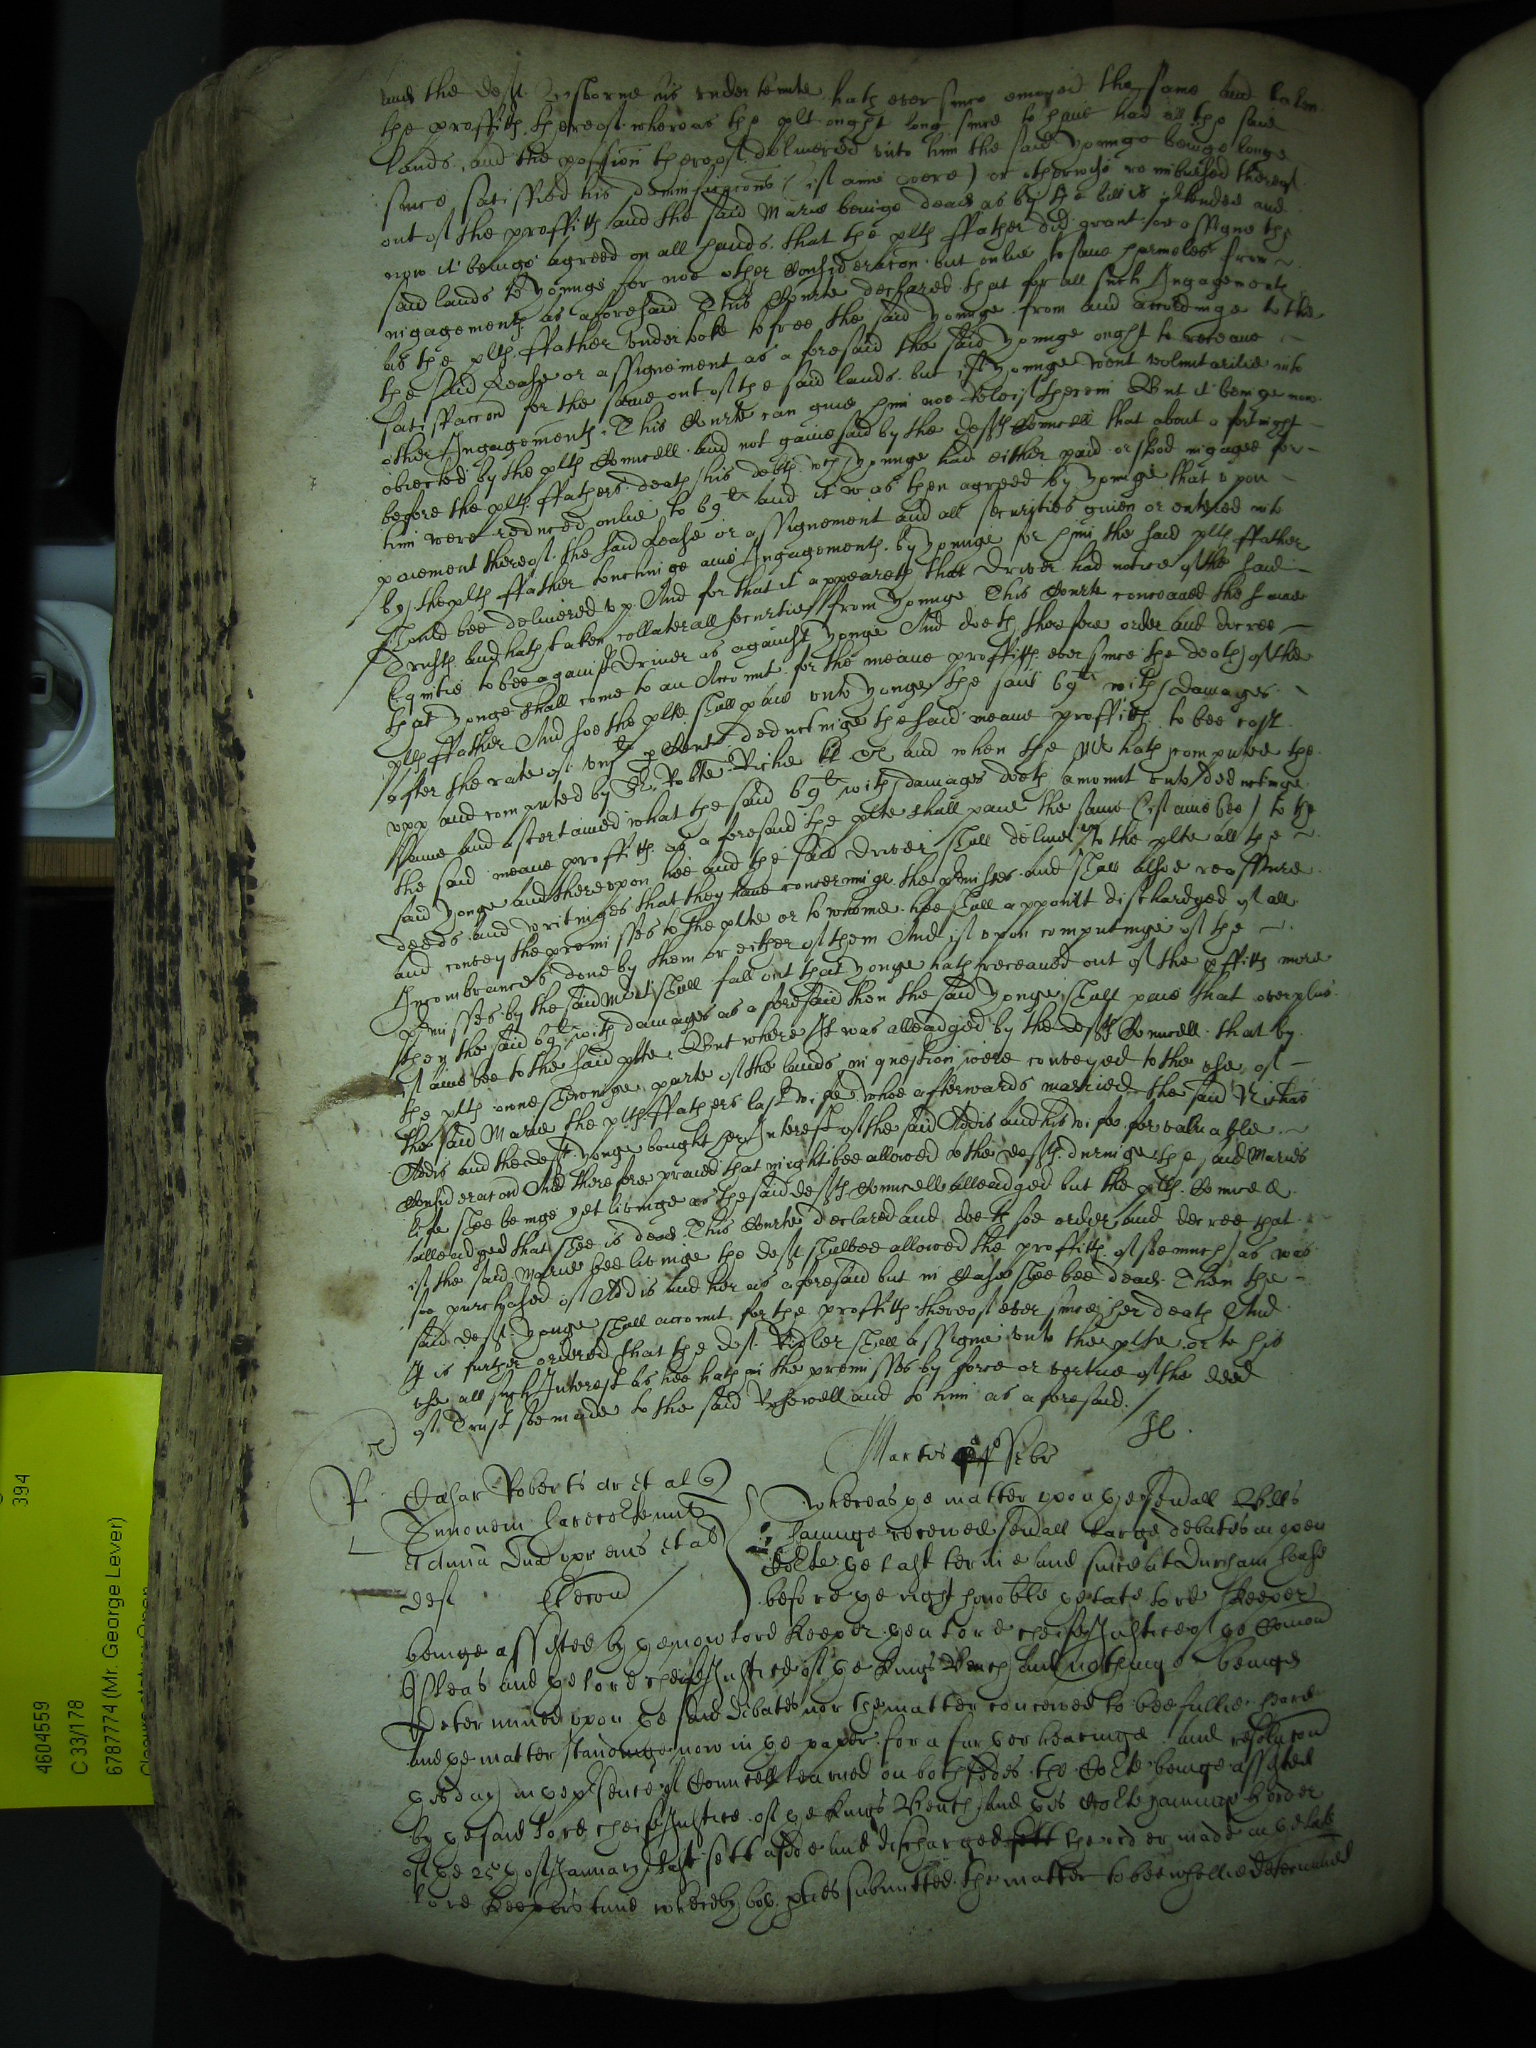 and the deft Osborne his undertennte hath ever since enioyed the same and taken
the proffitts thereof whereas the plt ought long since to have had all the said
lands, and the possion thereof delivered unto him the said Younge beinge longe
since satisfied his damnificacons (if anie were) or otherwise reimbursed thereof
out of the proffitts and the said Marie beinge dead as by the bill is pretended and
now it beinge agreed on all hands that the plts ffather did grant or assigne the
said lands to Younge for noe other consideracon but onlie to save harmeles from
ingagements as aforesaid This Courte declared that for all such Ingagements
as the plts ffather undertooke to free the said Younge from and accordinge to the
the said Lease or assignement as aforesaid the said Younge ought to receave
satisfaccon for the same out of the said lands but if Younge went voluntarilie into
other Ingagements This Courte can give him noe releif therein But it beinge now
obiected by the plts Councell and not gainesaid by the defts Councell that about a fortnight
before the plts ffathers death his debts wch Younge had either paid or stood ingaged for
him were reduced onlie to 69li and it was then agreed by Younge that upon
paiement thereof the said Lease or assignement and all securities given or entered into
by the plts ffather touchinge anie Ingagements by Younge for him the said plts ffather
should bee delivered up And for that it appeareth that Driver had notice of the said
Trusts and hath taken collaterall securities from Younge This Courte conceaved the same
Equitie to bee against Driver as against Yonge And doeth therefore order and decree
that Yonge shall come to an Accomt for the meane proffitts ever since the death of the
plts ffather And soe the plte shall paie unto Yonge the said 69li with damages
after the rate of p Cent deductinge the said meane proffitts to bee cast
upp and computed by Sr Robte Riche kt and when the Mr hath computed the
same and ascertained what the said 69li with damages doeth amount unto deductinge
the said meane proffitts as aforesaid the plte shall paie the same (if anie bee) to the
said Yonge and thereupon hee and the said Driver shall deliver to the plte all the
deeds and writinges that they have concerninge the premisses and shall alsoe reassure
and convey the premisses to the plte or to whome hee shall appoint discharged of all
Incombrances done by them or either of them And if upon computinge of the
premisses by the said Mr it shall fall out that Yonge hath receaved out of the pffitts more
then the said 69li with damages as aforesaid then the said Yonge shall paie that overplus
if anie bee to the said plte, But where it was alleadged by the defts Councell that by
the plts owne shewinge parte of the lands in question were conveyed to the use of
the said Marie the plts ffathers last wife whoe afterwards married the said Richard
Addis and the deft Yonge bought her Interest of the said Addis and his wife for valuable
Consideracon And therefore praied that might bee allowed to the defts duringe the said Maries
life shee beinge yet livinge as the said defts Councell alleadged but the plts Councell
alleadged that shee is dead This Courte declared and doeth soe order and decree that
if the said Marie bee livinge the deft shalbee allowed the proffitts of soe much as was
soe purchased of Addis and her as aforesaid but in Case shee bee dead Then the
said deft Yonge shall accomt for the proffitts thereof ever since her death And
It is further ordered that the deft shall assigne unto the plte or to his
use all such Interest as hee hath in the premisses by force or vertue of the deed
of Trust soe made to the said and to him as aforesaid.
Martis ffebr
Roberts ar et al
et al
deft
Whereas ye matter upon ye severall Bills
havinge received severall large debates in open
Corte ye last terme and since at Durham house
before ye right honoble ye late lord Keeper
beinge assisted by ye now lord Keeper then lord cheife Justice of ye Comon
Pleas and ye lord cheife Justice of ye Kings Bench and nothinge beinge
determined upon ye said debates nor the matter conceived to bee fullie heard
and ye matter standinge now in ye paper for a further hearinge and resolucon
this day in ye presence of Councell learned on both sides the Corte beinge assisted
by ye said lord cheife Justice of ye Kings Bench and this Corte havinge
of ye 25th of January last sett aside and discharged the order made in ye late
lord Keepers time whereby both pties submitted the matter to bee whollie determined
4604559
C 33/178
6787774 (Mr. George Lever)
394